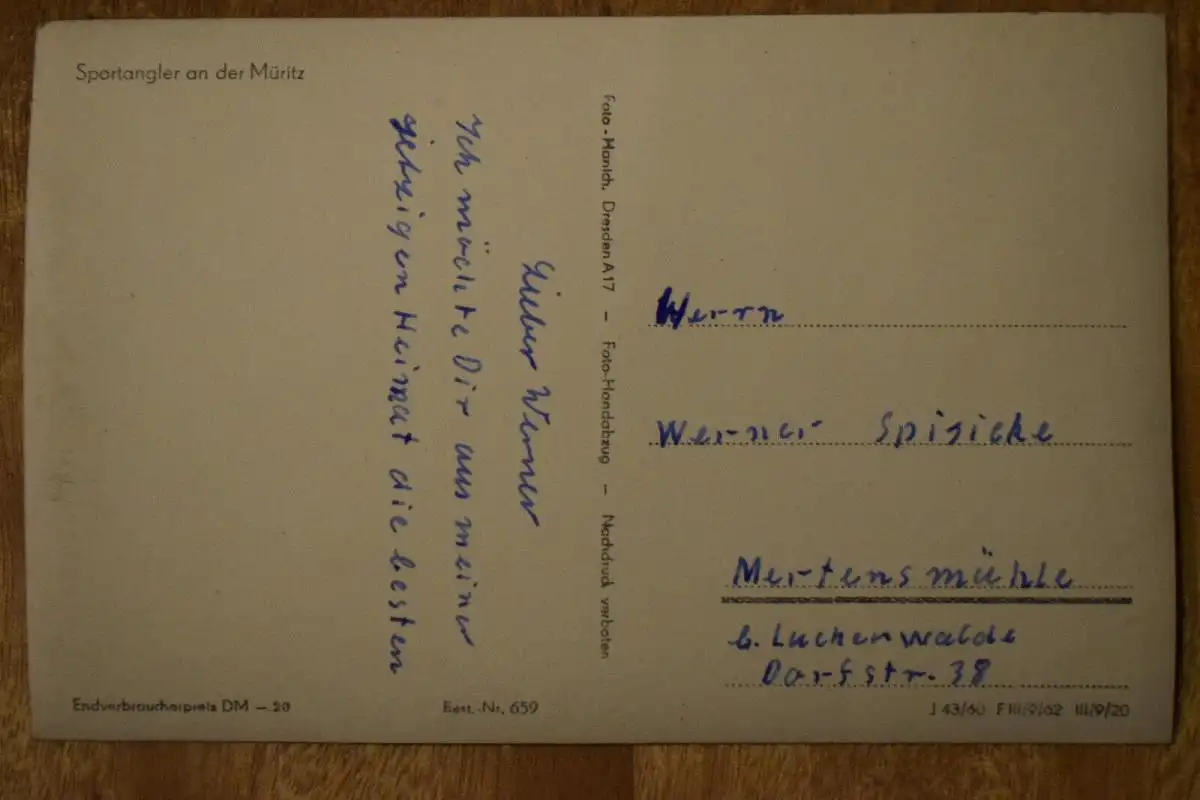 Sportangler an der Müritz
Lieber Werner
Ich möchte Dir aus meiner
jetzigen Heimat die besten
Foto-Manich, Dresden A 17 – Foto-Handabzug – Nachdruck verboten
Werrn
Werner
Mertensmühle
b. Luckenwalde
Dorfstr. 38
Endverbraucherpreis DM –.20
Best.-Nr. 659
J 43/60 F III/9/62 III/9/20